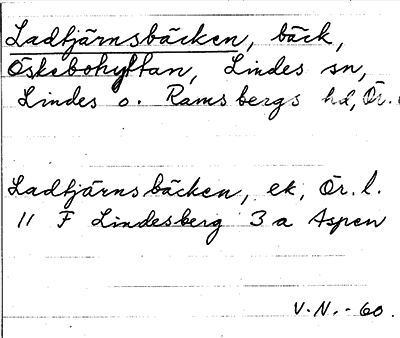 Ladtjärnsbäcken, bäck,
Öskebohyttan, Lindes sn,
Lindes o. Ramsbergs hd, Ör.
Ladtjärnsbäcken, ek, Ör. l.
11 F Lindesberg 3 a Aspen
V.N. - 60.